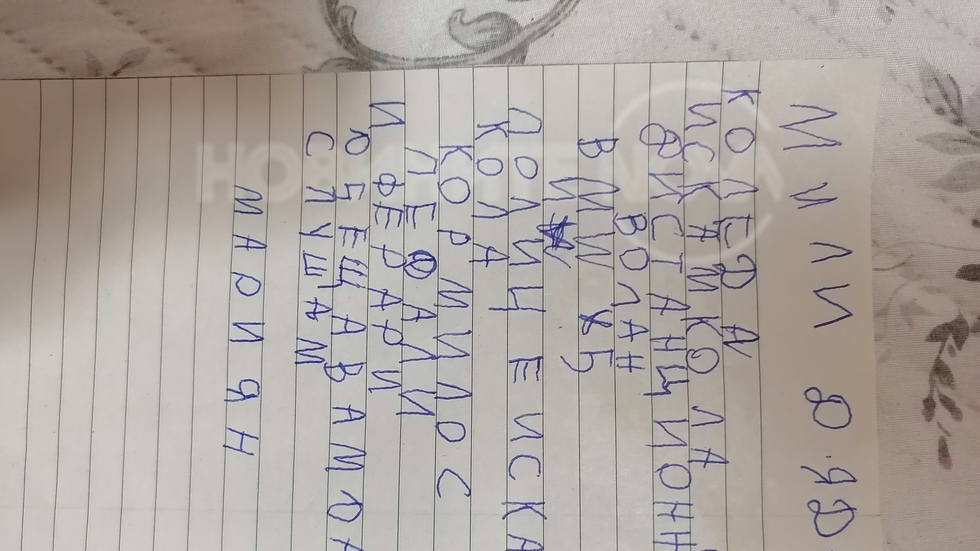 МИЛИ ДЯД
КОЛЕДА
ИСКАМ КОЛА
ДИСТАНЦИОНН
ВОЛАН
BMW X5
И
ПОЛИЦЕИСКА
КОЛА
КОРМИЛО С
ПЕДАЛИ
И ФЕРАРИ
ОБЕЩАВАМ ДА
СЛУШАМ
МАРИЯН